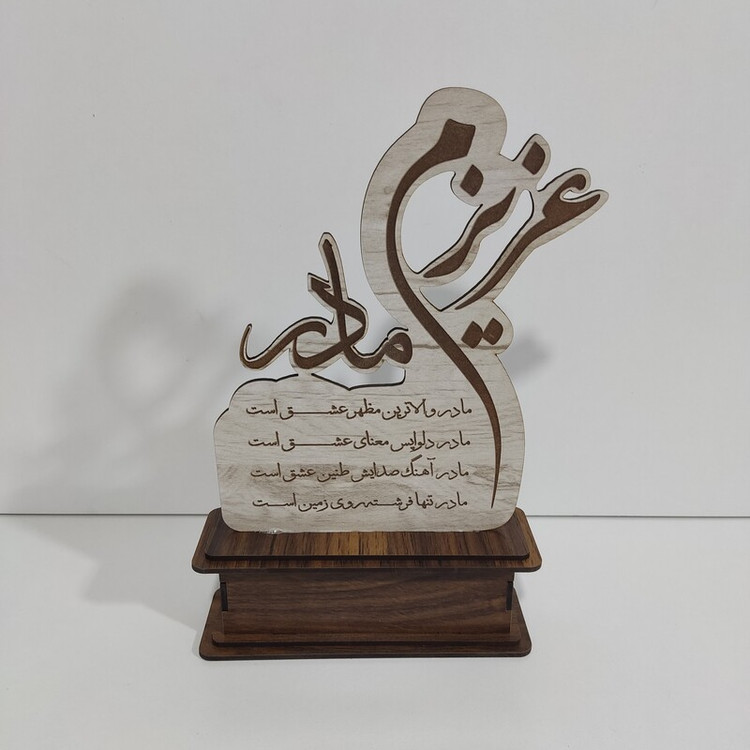 عزیزم
مادر
مادر والاترین مظهر عشق است
مادر دلواپس معنای عشق است
مادر آهنگ صدایش طنین عشق است
مادر تنها فرشته روی زمین است